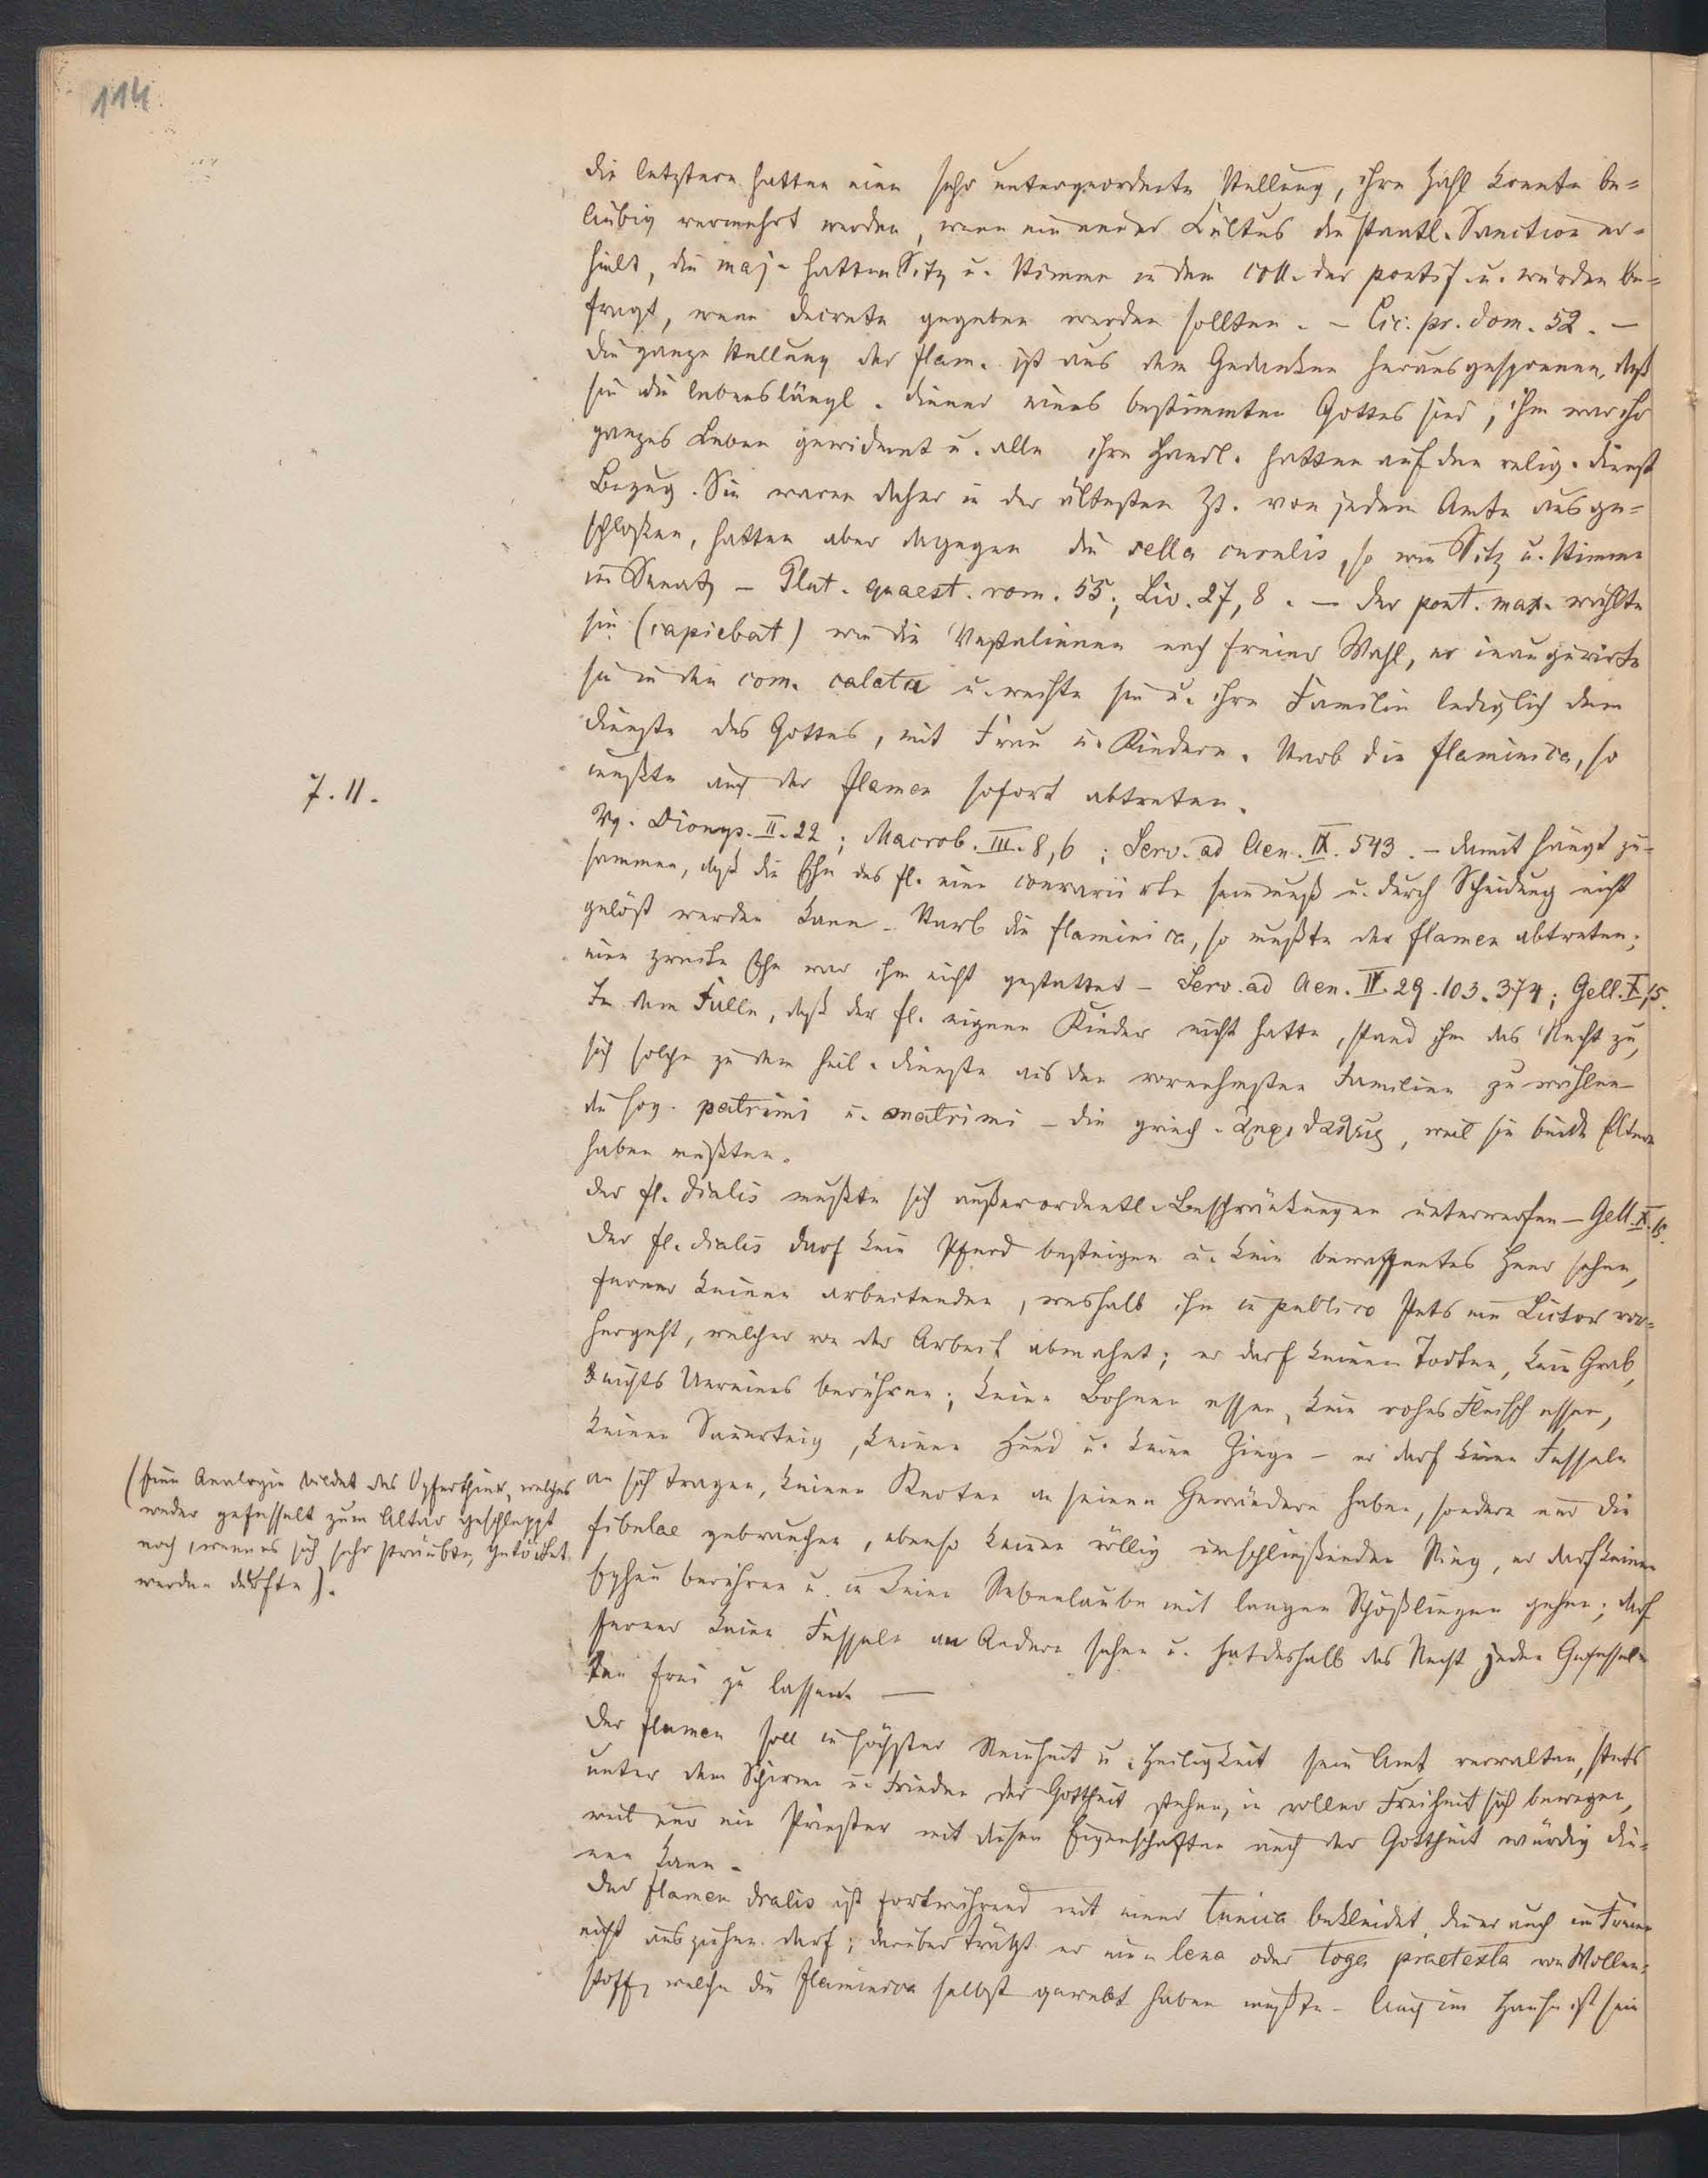 114
die letztern hatten eine sehr untergeordnete Stellung, ihre Zahl konnte be-
liebig vermehrt werden, wenn ein neuer Cultus die staatl. Sanction er-
hielt, die maj. hatten Sitz u. Stimme in dem coll. der pontif. u. wurden be-
fragt, wenn decrete gegeben werden sollten. – Cic. pr. dom. 52. –
die ganze Stellung der flam. ist aus dem Gedanken herausgesponnen, daß
sie die lebenslängl. diener eines bestimmten Gottes sind, ihm war ihr
ganzes Leben gewidmet u. alle ihre Handl. hatten auf den relig. dienst
Bezug. Sie waren daher in der ältesten Zt. von jedem Amte ausge-
schloßen, hatten aber dagegen die sella curulis, so wie Sitz u. Stimme
im Senat – Plut. quaest. rom. 55; Liv. 27, 8. – der pont. max. wählte
sie (capiebat) wie die Vestalinnen nach freier Wahl, er inaugurirte
sie in den com. calata u. weihte sie u. ihre Familie lediglich dem
dienste des Gottes, mit Frau u. Kindern. Starb die flaminica, so
mußte auch der flamen sofort abtreten.
7. 11.
Vg. Dionys. II. 22; Macrob. III. 8, 6; Serv. ad Aen. IX. 543. – damit hängt zu-
sammen, daß die Ehe des fl. eine sein muß u. durch Scheidung nicht
gelöst werden kann – Starb die flaminica, so mußte der flamen abtreten;
eine zweite Ehe war ihm nicht gestattet – Serv. ad Aen. IV. 29. 103. 374; Gell. X, 15.
In dem Falle, daß der fl. eigene Kinder nicht hatte, stand ihm das Recht zu,
sich solche zu dem heil. dienste aus den vornehmsten Familien zu wählen –
die sog. patrimi u. matrimi – die griech. , weil sie beide Eltern
haben mußten.
der fl. dialis mußte sich außerordentl. Beschränkungen unterwerfen – Gell. X. 15.
der fl. dialis darf kein Pferd besteigen u. kein bewaffnetes Heer sehen,
ferner keinen arbeitenden, weshalb ihm in publico stets ein Lictor vor-
hergeht, welcher von der Arbeit abmahnt; er darf keinen Todten, kein Grab,
nichts Unreines berühren; keine Bohnen essen, kein rohes Fleisch essen,
keinen Sauerteig, keinen Hund u. keine Ziege – er darf keine Fesseln
an sich tragen, keinen Knoten an seinen Gewändern haben, sondern nur die
fibulae gebrauchen, ebenso keinen völlig umschließenden Ring, er darf keinen
Epheu berühren u. in keine Rebenlaube mit langen Schößlingen gehen; darf
ferner keine Fesseln an Andern sehen u. hat deshalb das Recht jeden Gefessel-
ten frei zu lassen. –
(Eine Analogie bildet das Opferthier, welches
weder gefesselt zum Altar geschleppt
noch, wenn es sich sehr sträubte, getödtet
werden durfte).
der flamen soll in höchster Reinheit u. Heiligkeit sein Amt verwalten, stets
unter dem Schirme u. Frieden der Gottheit stehen, in voller Freiheit sich bewegen,
weil nur ein Priester mit diesen Eigenschaften auch der Gottheit würdig die-
nen kann.
der flamen dialis ist fortwährend mit einer tunica bekleidet, die er auch im Freien
nicht ausziehen darf; darüber trägt er eine lena oder toga praetexta von Wollen-
stoff, welche die flaminica selbst gewebt haben mußte – Auch im Hause ist sein